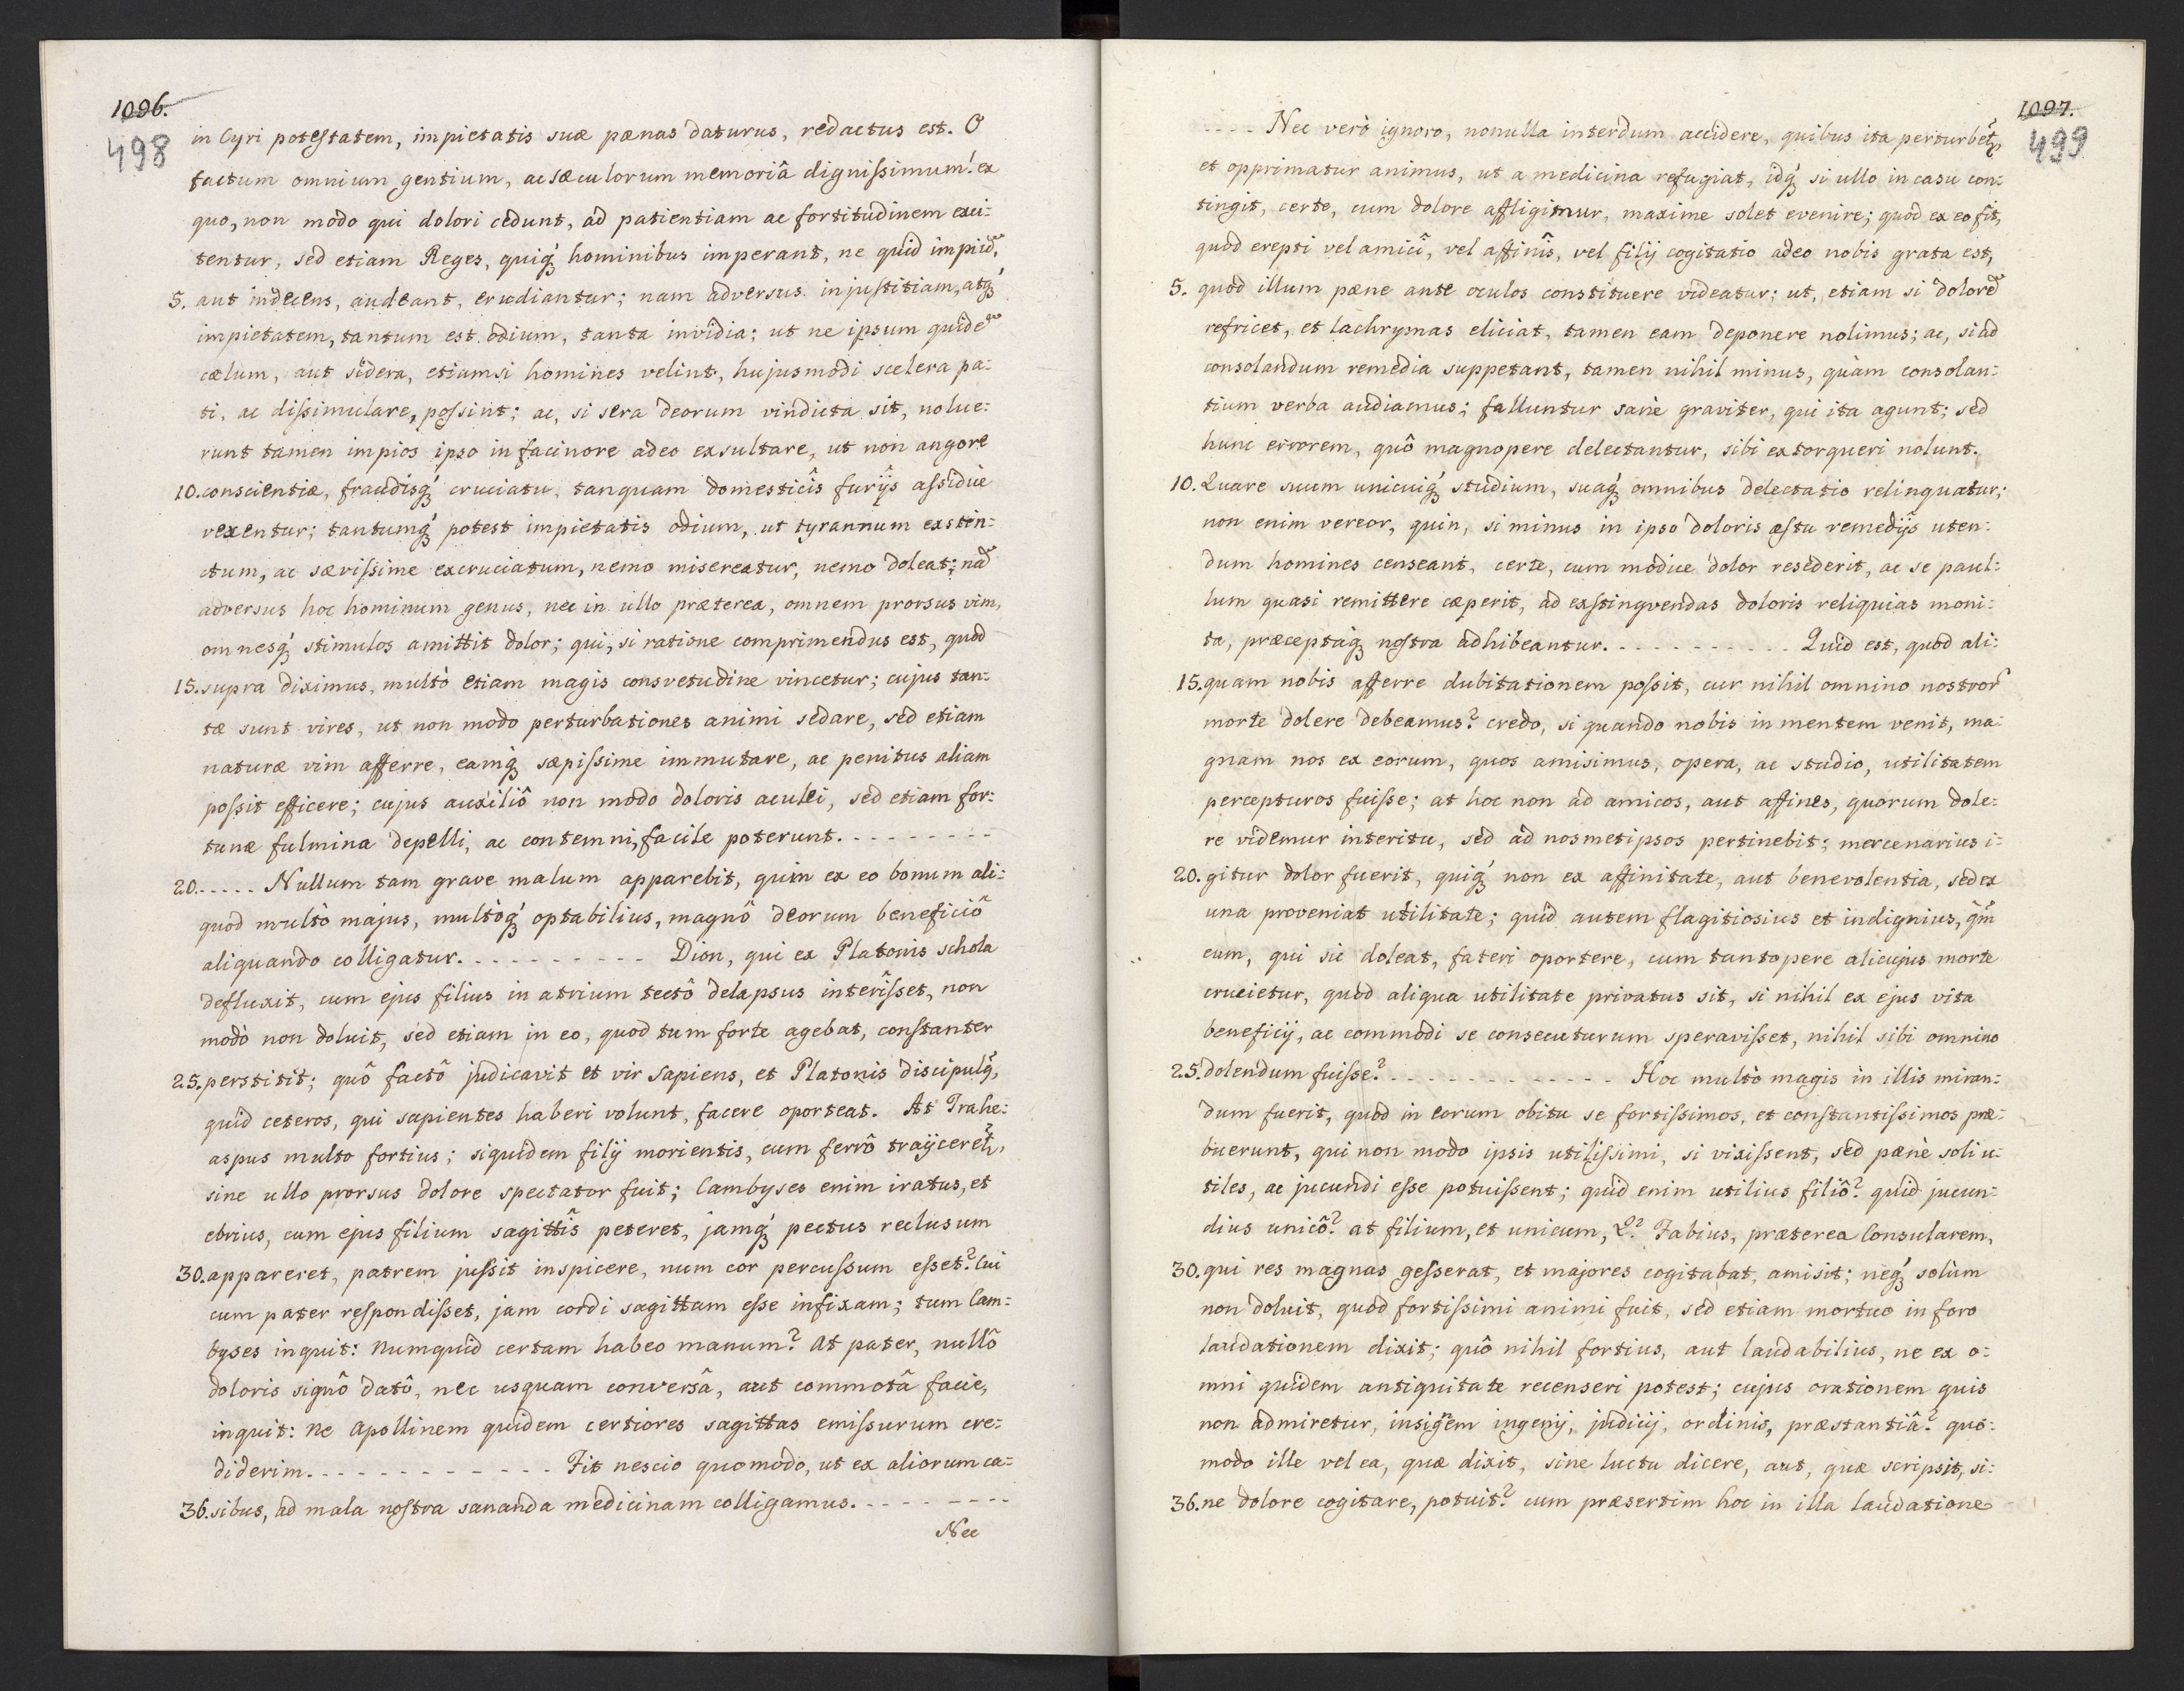 1096.
498
in Cyri potestatem, impietatis suæ pænas daturus, redactus est. O
factum omnium gentium, ac sæculorum memoriâ dignissimum! ex
quo, non modo qui dolori cedunt, ad patientiam ac fortitudinem exci=
tentur, sed etiam Reges, quiq́ꝫ hominibus imperant, ne quid impiũ,
5. aut indecens, audeant, erudiantur; nam adversus injustitiam, atq́ꝫ
impietatem, tantum est odium, tanta invidia; ut ne ipsum quidẽ
cælum, aut sidera, etiamsi homines velint, hujusmodi scelera pa=
ti, ac dissimulare, possint; ac, si sera deorum vindicta sit, nolue=
runt tamen impios ipso in facinore adeo exsultare, ut non angore
10. conscientiæ, fraudisq́ꝫ cruciatu, tanquam domesticîs furijs assiduè
vexentur; tantumq́ꝫ potest impietatis odium, ut tyrannum exstin=
ctum, ac sævissime excruciatum, nemo misereatur, nemo doleat; nã
adversus hoc hominum genus, nec in ullo præterea, omnem prorsus vim,
omnesq́ꝫ stimulos amittit dolor; qui, si ratione comprimendus est, quod
15. supra diximus, multò etiam magis consvetudine vincetur; cujus tan=
tæ sunt vires, ut non modo perturbationes animi sedare, sed etiam
naturæ vim afferre, eamq́ꝫ sæpissime immutare, ac penitus aliam
possit efficere; cujus auxiliô non modo doloris aculei, sed etiam for=
tunæ fulmina depelli, ac contemni, facile poterunt. - - - - - - - -
20. - - - - - Nullum tam grave malum apparebit, quin ex eo bonum ali=
quod multò majus, multòq́ꝫ optabilius, magnô deorum beneficiô
aliquando colligatur. - - - - - - - - - - Dion, qui ex Platonis schola
defluxit, cum ejus filius in atrium tectô delapsus interîsset, non
modò non doluit, sed etiam in eo, quod tum forte agebat, constanter
25. perstitit; quô factô judicavit et vir sapiens, et Platonis discipulꝰ,
quid ceteros, qui sapientes haberi volunt, facere oporteat. At Trahe=
aspus multo fortius; siquidem filij morientis, cum ferrô traijceret᷑,
sine ullo prorsus dolore spectator fuit; Cambyses enim iratus, et
ebrius, cum ejus filium sagittîs peteret, jamq́ꝫ pectus reclusum
30. appareret, patrem jussit inspicere, num cor percussum esset? Cui
cum pater respondisset, jam cordi sagittam esse infixam; tum Cam=
byses inquit: Numquid certam habeo manum? At pater, nullô
doloris signô datô, nec usquam conversâ, aut commotâ facie,
inquit: Ne Apollinem quidem certiores sagittas emissurum cre=
diderim. - - - - - - - - - - - - Fit nescio quomodo, ut ex aliorum ca=
36. sibus, ad mala nostra sananda medicinam colligamus. - - - - - - - -
Nec
1097.
499
- - - - Nec verò ignoro, nonulla interdum accidere, quibus ita perturbet᷑,
et opprimatur animus, ut a medicina refugiat, idq́ꝫ si ullo in casu con=
tingit, certe, cum dolore affligimur, maxime solet evenire; quod ex eo fit,
quod erepti vel amicî, vel affinîs, vel filij cogitatio adeo nobis grata est,
5. quod illum pæne ante oculos constituere videatur; ut, etiam si dolorẽ
refricet, et lachrymas eliciat, tamen eam deponere nolimus; ac, si ad
consolandum remedia suppetant, tamen nihil minus, quàm consolan=
tium verba audiamus; falluntur sanè graviter, qui ita agunt; sed
hunc errorem, quô magnopere delectantur, sibi extorqueri nolunt.
10. Quare suum unicuiq́ꝫ studium, suaq́ꝫ omnibus delectatio relinquatur;
non enim vereor, quin, si minus in ipso doloris æstu remedijs uten=
dum homines censeant, certe, cum modice dolor resederit, ac se paul=
lum quasi remittere cæperit, ad exstingvendas doloris reliquias moni=
ta, præceptaq́ꝫ nostra adhibeantur. - - - - - - - - - - - Quid est, quod ali=
15. quam nobis afferre dubitationem possit, cur nihil omnino nostror᷑
morte dolere debeamus? credo, si quando nobis in mentem venit, ma=
gnam nos ex eorum, quos amisimus, opera, ac studio, utilitatem
percepturos fuisse; at hoc non ad amicos, aut affines, quorum dole=
re videmur interitu, sed ad nosmetipsos pertinebit; mercenarius i=
20. gitur dolor fuerit, quiq́ꝫ non ex affinitate, aut benevolentia, sed ex
una proveniat utilitate; quid autem flagitiosius et indignius, q̃m
eum, qui sic doleat, fateri oportere, cum tantopere alicujus morte
crucietur, quod aliqua utilitate privatus sit, si nihil ex ejus vita
beneficij, ac commodi se consecuturum speravisset, nihil sibi omnino
25. dolendum fuisse? - - - - - - - - - - - - Hoc multò magis in illis miran=
dum fuerit, quòd in eorum obitu se fortissimos, et constantissimos præ=
buerunt, qui non modo ipsis utilissimi, si vixissent, sed pænè soli u=
tiles, ac jucundi esse potuissent; quid enim utilius filiô? quid jucun=
dius unicô? at filium, et unicum, Q? Fabius, præterea Consularem,
30. qui res magnas gesserat, et majores cogitabat, amisit; neq́ꝫ solùm
non doluit, quod fortissimi animi fuit, sed etiam mortuo in foro
laudationem dixit; quô nihil fortius, aut laudabilius, ne ex o=
mni quidem antiquitate recenseri potest; cujus orationem quis
non admiretur, insigñem ingenij, judicij, ordinis, præstantiâ? quo=
modo ille vel ea, quæ dixit, sine luctu dicere, aut, quæ scripsit, si=
36. ne dolore cogitare, potuit? cum præsertim hoc in illa laudatione